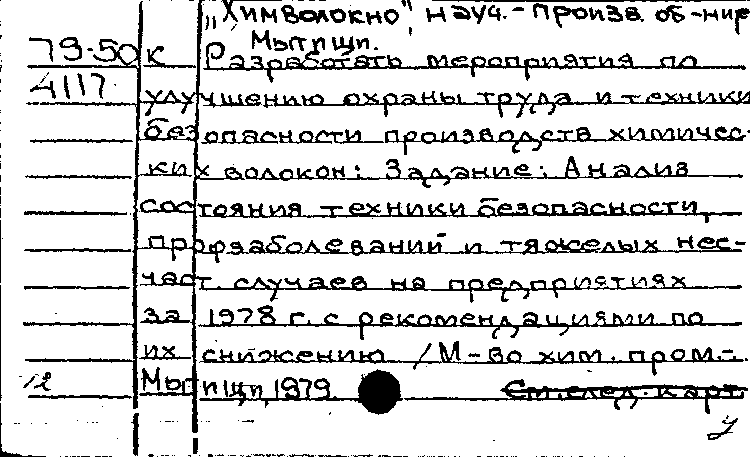 „Химволокно", науч.-произв. об-ние
Мытищи.
79-50к Разработать мероприятия по
4117 улучшению охраны труда и техники
безопасности производств химичес-
ких волокон: Задание: Анализ
состояния техники безопасности,
профзаболеваний и тяжелых нес-
част. случаев на предприятиях
за 1978 г. с рекомендациями по
их снижению /М-во хим. пром.-
12 Мытищи, 1979. См. след. карт.